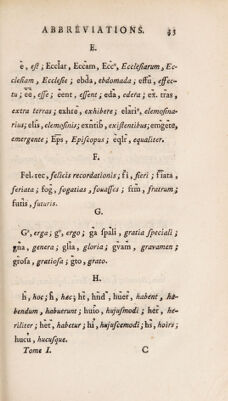 ABBRÉVIATIONS. 33
E.
ē, est; Ecclar, Ecclam, Eccᵉ, Ecclesiarum, Ec-
clesiam, Ecclesie; ebda, ebdomada; effū, effec-
tu; ēē, esse; ēent, essent; edā, edera; ex. tras,
extra terras; exhrē, exhibere; elariˢ, elemosina-
rius; elis, elemosinis; exntib, existentibus; emgēte,
emergente; Eps, Episcopus; eqlr, equaliter.
F.
Fel. rec, felicis recordationis; fi, fieri; fiata,
feriata; fog, fogatias, fouasses; frm, fratrum;
futis, futuris.
G.
Gᵃ, erga; gᵒ, ergo; ga spali, gratia speciali;
gna, genera; glia, gloria; gvam, gravamen;
grosa, gratiosa; gto, grato.
H.
h, hoc; h, hec; ht, hnd, huer, habent, ha-
bendum, habuerunt; huio, hujusmodi; her, he-
riliter; het, habetur; hi, hujuscemodi; hs, hoirs;
hucu, hucusque.
Tome I. C